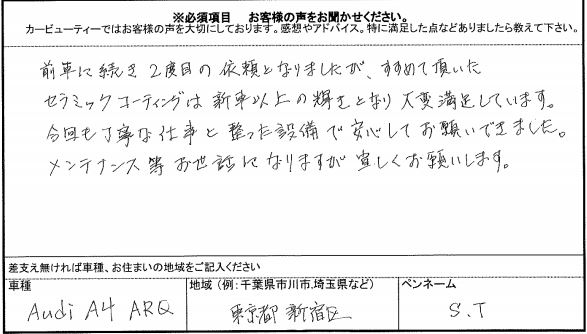 ※必須項目　お客様の声をお聞かせください。
カービューティーではお客様の声を大切にしております。感想やアドバイス。特に満足した点などありましたら教えて下さい。
前車に続き2度目の依頼となりましたが、すすめて頂いた
セラミックコーティングは新車以上の輝きとなり大変満足しています。
今回も丁寧な仕事と整った設備で安心してお願いできました。
メンテナンス等お世話になりますが宜しくお願いします。
差支え無ければ車種、お住まいの地域をご記入ください
車種　地域（例：千葉県市川市.埼玉県など）　ペンネーム
Audi A4 ARQ　東京都新宿区　S.T